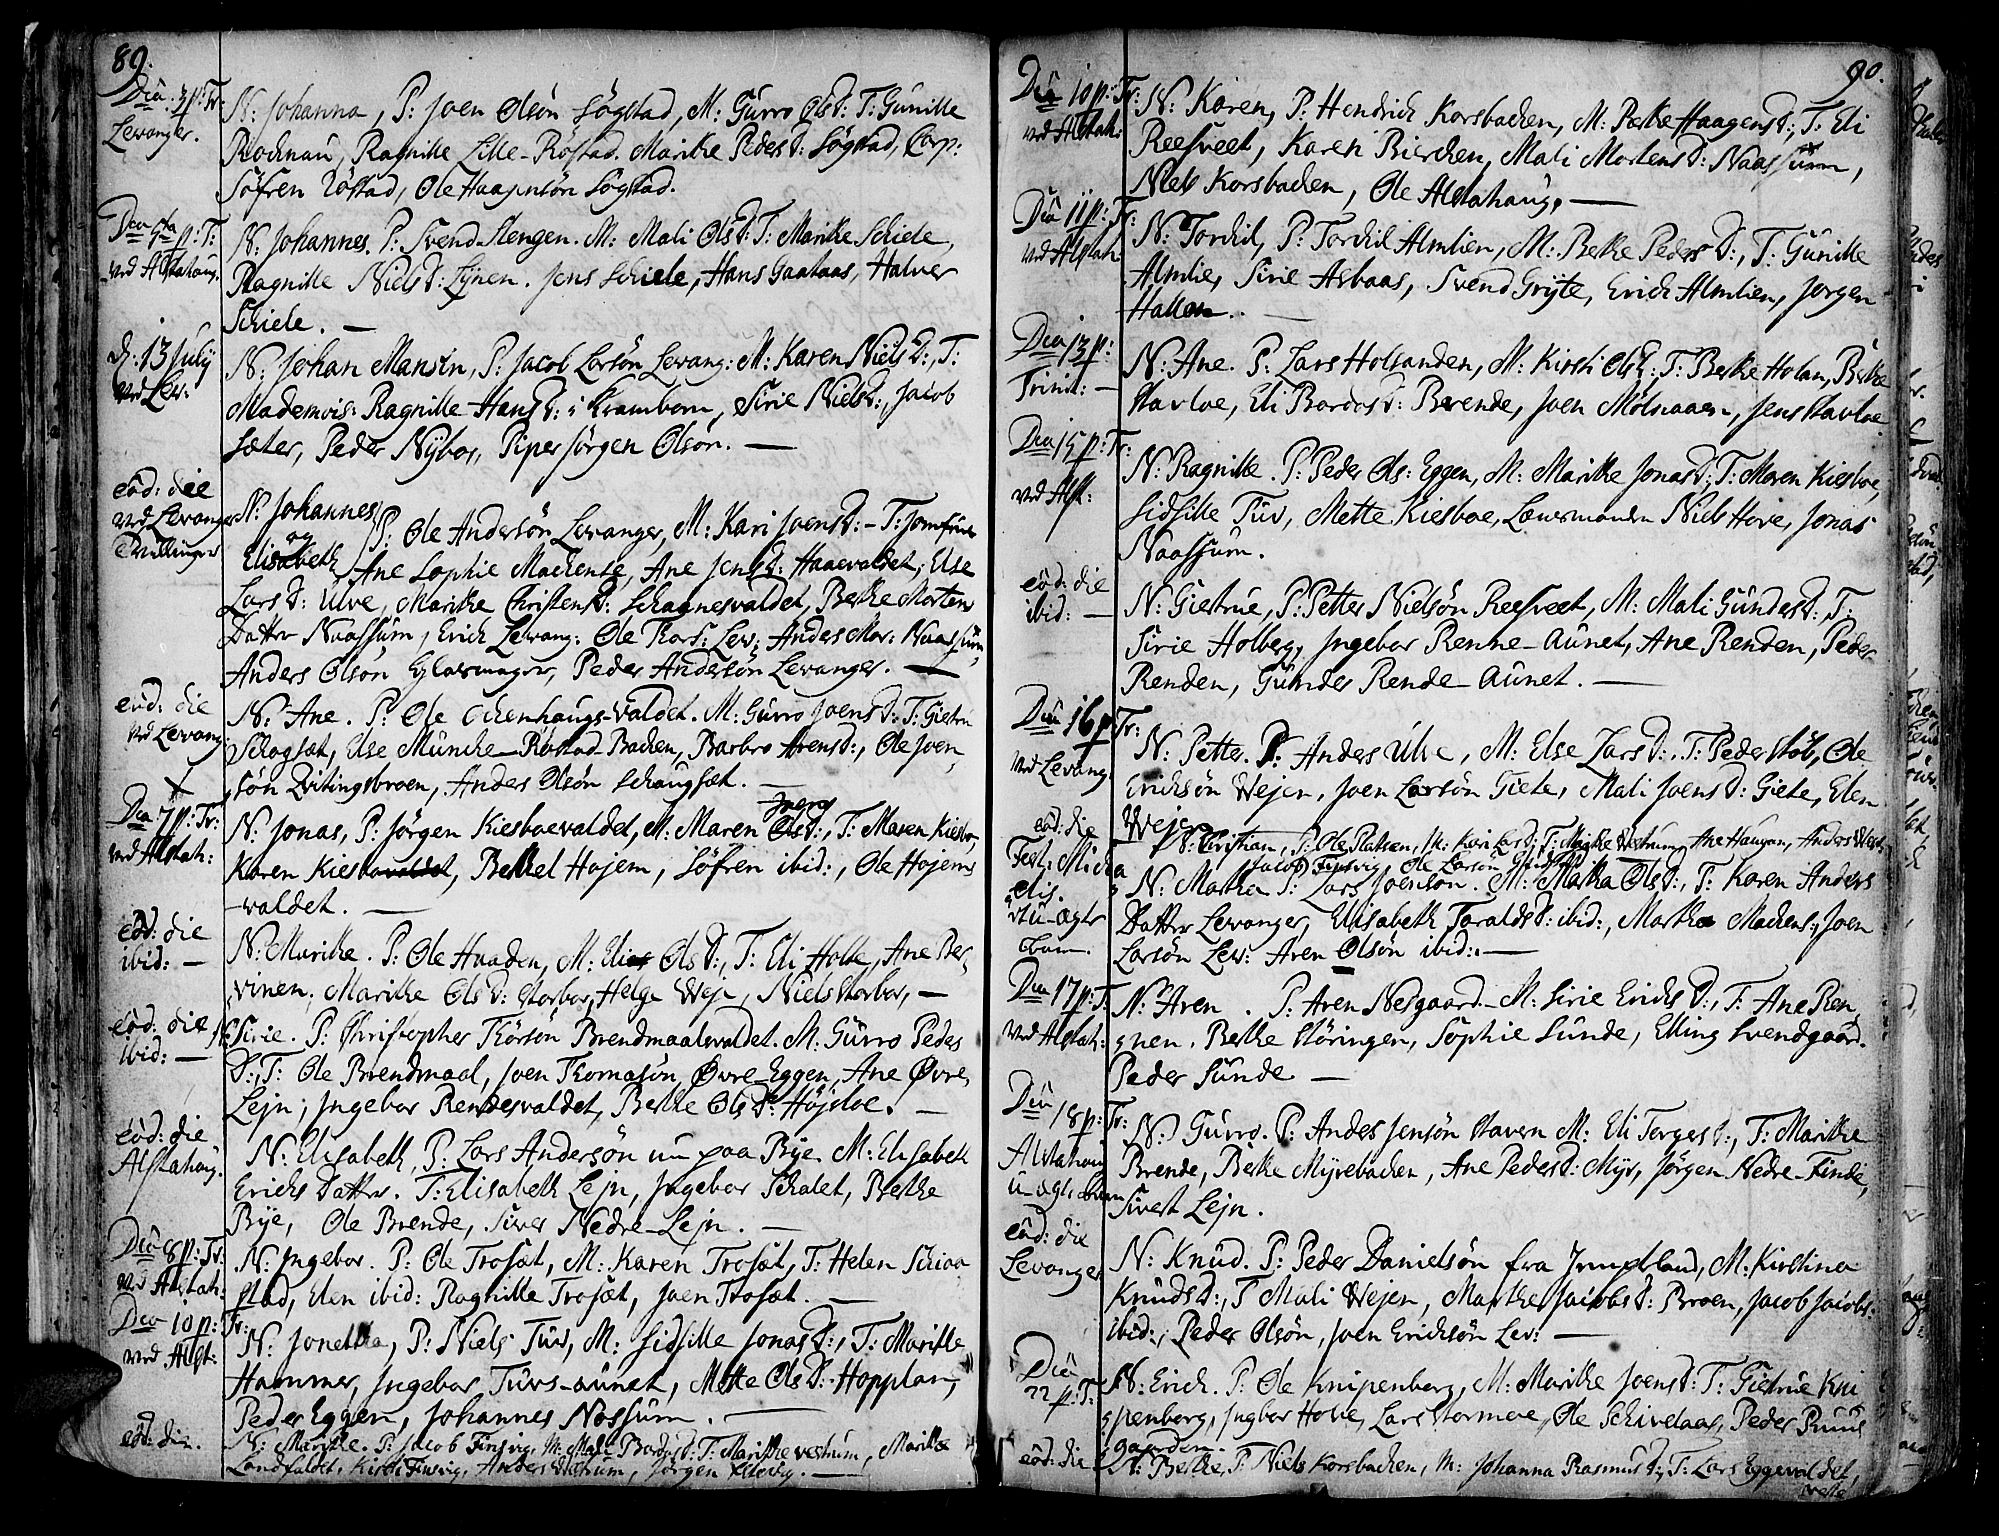 89.
Dca 3 p: Tr:
Levanger.
N: Johanna, P: Joen Olsön Sögstad, M: Gurro Ols D: T: Gunille
Rochnau, Ragnille Lille-Röstad. Marithe Peders D: Sögstad, Corp:
Söfren Röstad, Ole Haagensön Sögstad.
Dca 5ta p: T:
ved Alstahaug.
N: Johannes. P: Svend Stengen. M: Mali Ols D: T: Marithe Schiele,
Ragnille Niels D: Lÿnen. Jens Schiele, Hans Gaataas, Halver
Schiele. —
d: 13 Julij
ved Lev:
N: Johan Mansin, P: Jacob Larsön Levang: M: Karen Niels D:, T:
Mademois: Ragnille Hans D: i Kramboen, Sirie Niels D:, Jacob
Sæter, Peder Nÿboe, Piper Jörgen Olsön. —
eod: die
ved Levanger
Tvillinger
N: Johannes
og
Elisabeth
P: Ole Andersön Levanger, M: Kari Joens D: — T: Jomfrue
Ane Sophie Machense, Ane Jens D: Haaevaldet, Else
Lars D: Ulve, Marithe Christens D: Schagnesvaldet, Berthe Morten
Datter Naassum, Erich Levang: Ole Thors: Lev: Andes Mor: Naassum,
Anders Olsön Glasmager, Peder Andersön Levanger. —
eod: die
ved Levang:
N: Ane. P: Ole Ochenhaugs-valdet. M: Gurro Joens D: T: Gietru
Schogsæt, Else Muncke-Röstad-Bachen, Barbro Arens D:, Ole Joen
sön Qvitingsbroen, Anders Olsön Schaugsæt. —
Dca 7 p: Tr:
ved Alstah:
N: Jonas, P: Jörgen Kiesboevaldet, M: Maren Ols D:, T: Maren Kiesboe,
Karen Kiesboe, Berthel Hojem, Söfren ibid:, Ole Hojems
-valdet. —
eod: die
ibid: —
N: Marithe. P: Ole Haaden, M: Eli Ols D:, T: Eli Holte, Ane Ber
vinen, Marithe Ols D: Storboe, Helge Weje, Niels Storboe, —
eod: die
ibid: —
N: Sirie. P: Christopher Thorsön Brendmaalsvaldet. M: Gurro Peders
D:, T: Ole Brendmaal, Joen Thomasön Övre-Eggen, Ane Övre
Lejn, Ingebor Rendesvaldet, Berthe Ols D: Höjsloe. —
eod: die
Alstahaug.
N: Elisabeth, P: Lars Andersön nu paa Bÿe M: Elisabeth
Erichs Datter. T: Elisabeth Lejn, Ingebor Schalet, Berthe
Bÿe, Ole Brende, Siver Nedre-Lejn. —
Dca 8 p: Tr:
ved Alstah:
N: Ingebor. P: Ole Trosæt, M: Karen Trosæt, T: Helen Schiaa
stad, Elen ibid: Ragnille Trosæt, Joen Trosæt. —
Dca 10 p: Tr:
ved Alst:
N: Jonetha, P: Niels Tuv, M: Sidsille Jonas D:, T: Marithe
Hammer, Ingebor Tuvs-aunet, Mette Ols D: Hopplan,
Peder Eggen, Johannes Nossum. —
eod: die.
N: Marithe. P: Jacob Finsvig, M: Mali Bardos D: T: Marithe Vestrum, Marithe
Landfaldet, Kirsti Finsvig, Anders Vestrum, Jörgen Finsvig. —
90.
Dca 10 p: Tr:
ved Alstah:
N: Karen, P: Hendrich Korsbachen, M: Berthe Haagens D:, T: Eli
Reesveet, Karen Bierchen, Mali Mortens D: Naassum,
Niels Korsbachen, Ole Alstahaug, —
Dca 11 p: Tr:
ved Alstah:
N: Torchil, P: Torchil Almlien, M: Berthe Peders D:, T: Gunille
Almlie, Sirie Asbaas, Svend Grÿte, Erich Almlien, Jorgen
Hallem. —
Dca 13 p:
Trinit: —
N: Ane. P: Lars Holsanden, M: Kirsti Ols D:, T: Berthe Holan, Berthe
Stavloe, Eli Bardos D: Brende, Joen Mölnaaen, Jens Stavloe.
Dca 15 p: Tr:
ved Alst:
N: Ragnille. P: Peder Ols: Eggen, M: Marithe Jonas D:, T: Maren Kiesboe,
Sidsille Tuv, Mette Kiesboe, Lænsmanden Niels Hove, Jonas
Naassum.
eod: die
ibid: —
N: Gietrue, P: Petter Nielsön Reesveet, M: Mali Gundes D:, T:
Sirie Holberg, Ingebor Renne-aunet, Ane Renden, Peder
Renden, Gunder Rende-aunet. —
Dca 16 p: Tr:
ved Levang:
N: Petter. P: Anders Ulve, M: Else Lars D:. T: Peder Stöb, Ole
Ericksön Wejen, Joen Larsön Giete, Mali Joens D: Giete, Elen
Wejen
eod: die
N: Christian, P: Ole Platsen, M: Kari Lars D: T: Marithe Vestrum, Ane Haugan, Anders West:
Jacob Finsvig, Ole Larsön
Fest: Micha
elis.
u-ægte
barn.
N: Martha P: Lars Joensön. M: Martha Ols D:, T: Karen Anders
Datter Levanger, Elisabeth Toralds D: ibid:, Martha Machens:, Joen
Larsön Lev: Aren Olsön ibid:. —
Dca 17 p: T:
ved Alstah:
N: Aren. P: Aren Nesgaard — M: Sirie Erichs D:, T: Ane Ren
gnen. Berthe Störingen, Sophie Sunde, Elling Svendgaard.
Peder Sunde —
Dca 18 p: Tr:
Alstahaug
u-ægte barn
N: Gurro. P: Andes Jensön Staven M: Eli Torgers D:, T: Marithe
Brende, Berthe Mÿrebachen, Ane Peders D: Mÿr, Jörgen Nedre-Finde,
Sivert Lejn.
eod: die
Levanger
N: Knud. P: Peder Danielsön fra Jempteland, M: Kirstina
Knuds D:, T Mali Wejen, Marthe Jacobs D: Broen, Jacob Jacobs:
ibid:, Peder Olsön, Joen Ericksön Lev: —
Dca
22 p: T:
N: Erich. P: Ole Knipenberg, M: Marithe Joens D: T: Gietrue Kni
penberg, Ingbor Hove, Lars Stormoe, Ole Schivelaas, Peder Pruus
gaarden.
eod: die —
N: Berthe, P: Niels Korsbachen, M: Johanna Rasmus D:, T: Lars Eggevaldet,